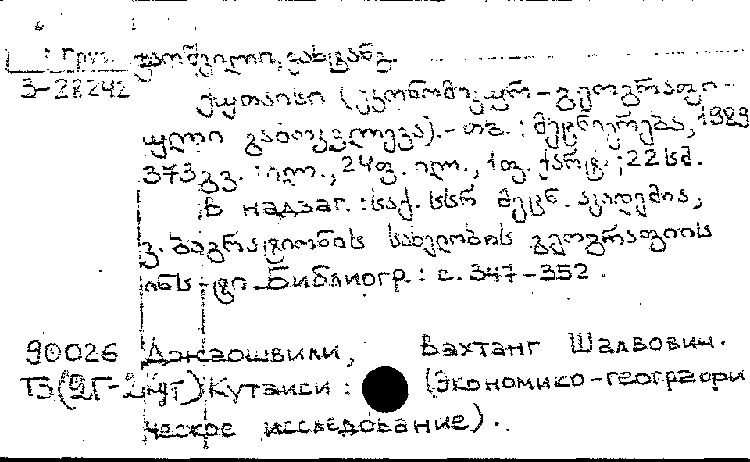 груз. ჯაოშვილი, ვახტანგ.
3-28242
ქუთაისი (ეკონომიკურ-გეოგრაფი-
ული გამოკვლევა).- თბ. : მეცნიერება, 1989
373 გვ. : ილ., 24 ფ. ილ., 1 ფ. ქარტ. ; 22 სმ.
В надзаг. : საქ. სსრ მეცნ. აკადემია,
ვ. ბაგრატიონის სახელობის გეოგრაფიის
ინს-ტი. Библиогр. : с. 347-352.
90026 Джаошвили, Вахтанг Шалвович.
Т3(2Г-2Кут) Кутаиси : (Экономико-географи
ческое исследование).